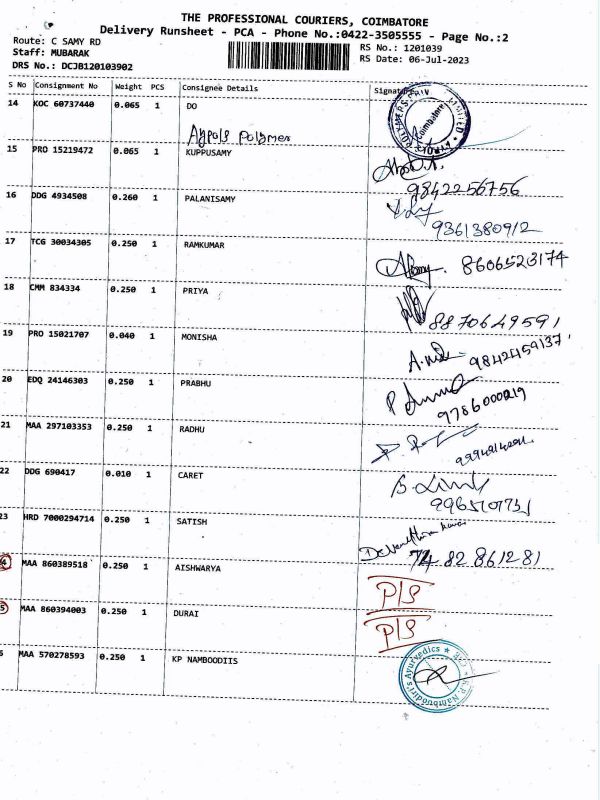 THE PROFESSIONAL COURIERS, COIMBATORE
Delivery Runsheet - PCA - Phone No.:0422-3505555 - Page No.:2
Route: C SAMY RD
RS No.: 1201039
Staff: MUBARAK
RS Date: 06-Jul-2023
DRS No.: DCJB120103902
S No Consignment No Weight PCS Consignee Details Signature
14 KOC 60737440 0.065 1 DO
Coimbatore
15 PRO 15219472 0.065 1 KUPPUSAMY
9842256756
16 DDG 4934508 0.260 1 PALANISAMY
9361380912
17 TCG 30034305 0.250 1 RAMKUMAR
8606523174
18 CMM 834334 0.250 1 PRIYA
8870649591
19 PRO 15021707 0.040 1 MONISHA
9842459137
20 EDQ 24146303 0.250 1 PRABHU
9786000219
21 MAA 297103353 0.250 1 RADHU
22 DDG 690417 0.010 1 CARET
23 HRD 7000294714 0.250 1 SATISH
74 82 861281
MAA 860389518 0.250 1 AISHWARYA P/S
MAA 860394003 0.250 1 DURAI P/S
MAA 570278593 0.250 1 KP NAMBOODIIS
K.P. Namboodiri's Ayurvedics